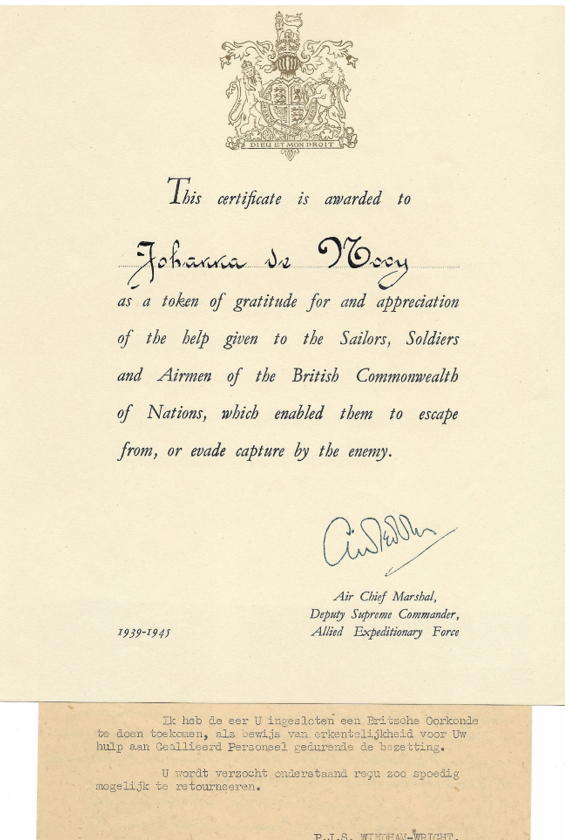 DIEU ET MON DROIT
This certificate is awarded to
Johanna de Nooy
as a token of gratitude for and appreciation
of the help given to the Sailors, Soldiers
and Airmen of the British Commonwealth
of Nations, which enabled them to escape
from, or evade capture by the enemy.
Air Chief Marshal,
Deputy Supreme Commander,
1939-1945 Allied Expeditionary Force
Ik heb de eer U ingesloten een Britsche Oorkonde
te doen toekomen, als bewijs van erkentelijkheid voor Uw
hulp aan Geallieerd Personeel gedurende de bezetting.
U wordt verzocht onderstaand reçu zoo spoedig
mogelijk te retourneeren.
P.J.S. WINDHAM-WRIGHT.